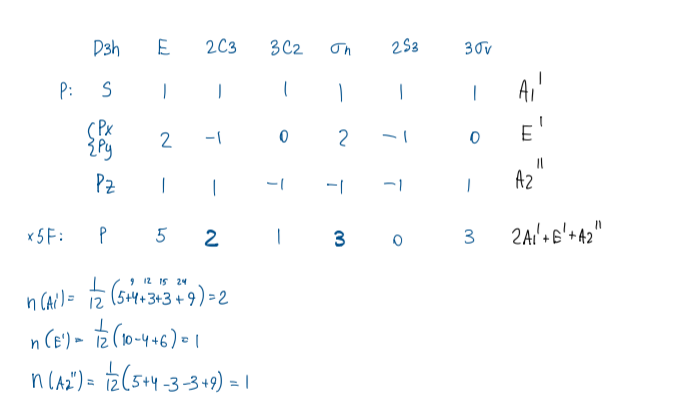 D3h E 2C3 3C2 σh 2S3 3σv
P: S 1 1 1 1 1 1 A1'
{Px 2 -1 0 2 -1 0 E'
{Py
Pz 1 1 -1 -1 -1 1 A2''
x5F: P 5 2 1 3 0 3 2A1'+E'+A2''
9 12 15 24
n(A1')= 1/12 (5+4+3+3+9)=2
n(E')= 1/12 (10-4+6)=1
n(A2'')= 1/12 (5+4-3-3+9)=1